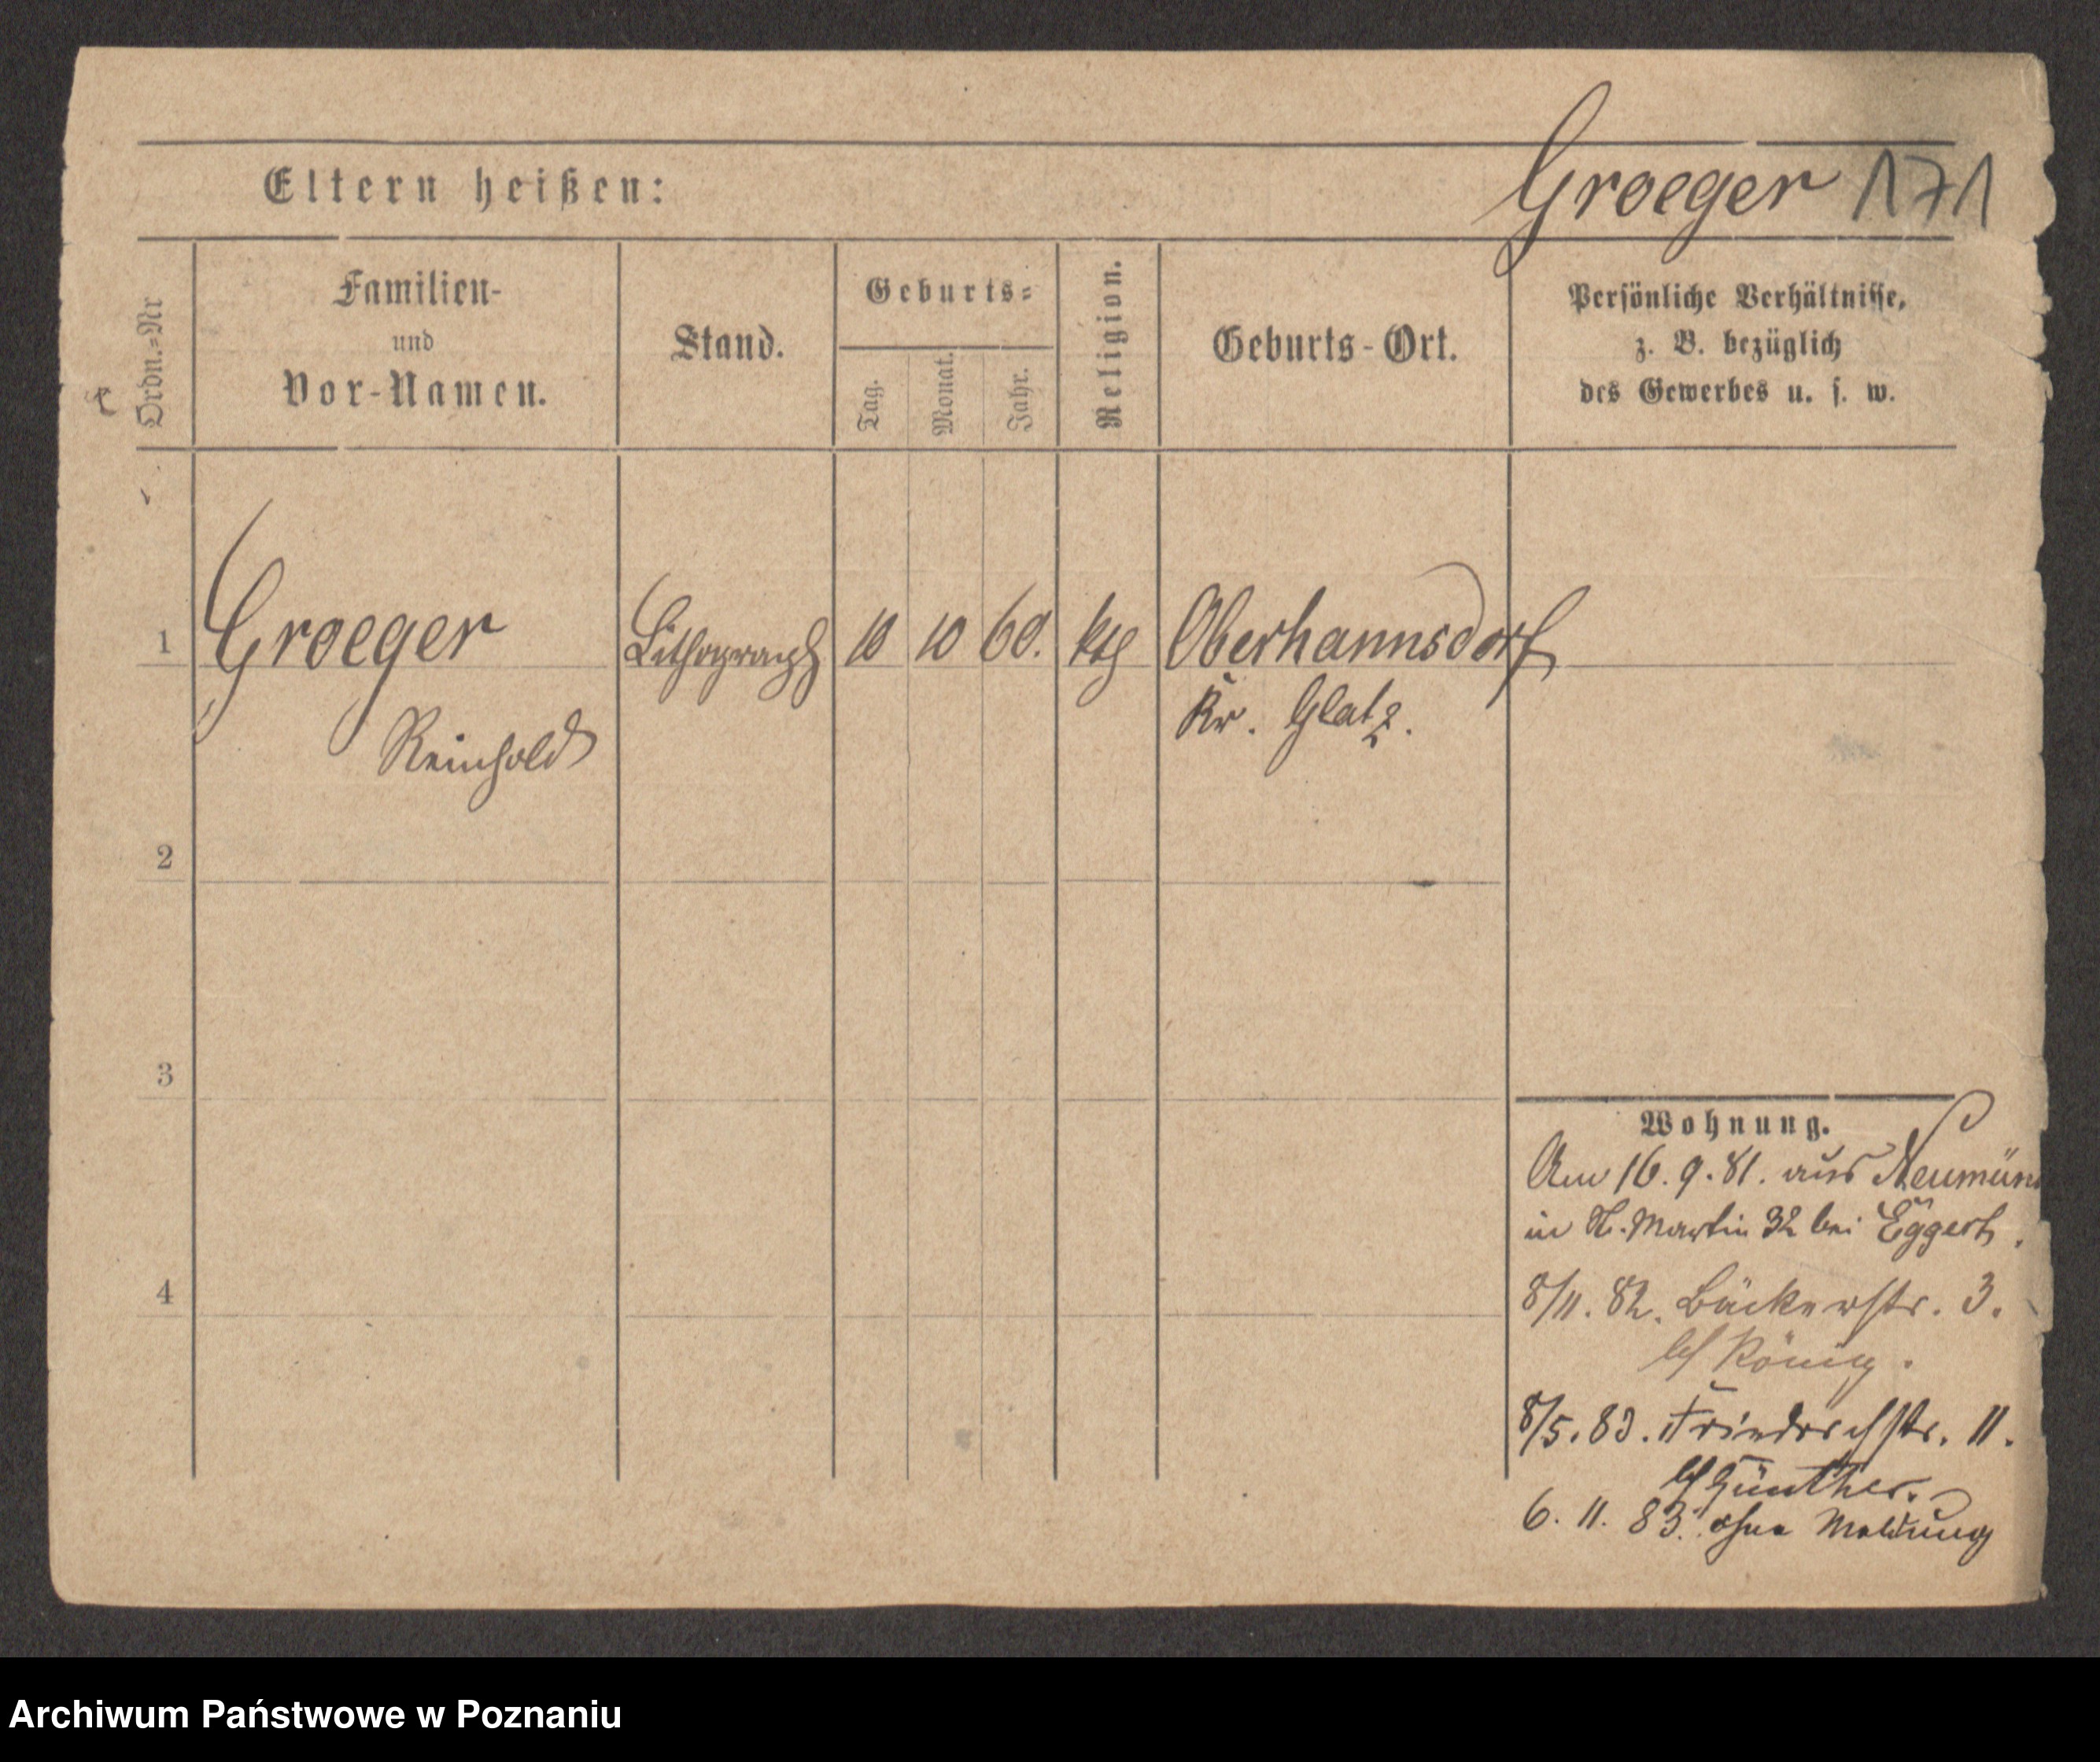 Groeger 171
Eltern heißen:
Ordn.=Nr
Familien-
und
Vor-Namen.
Stand.
Geburts=
Tag.
Monat.
Jahr.
Religion.
Geburts-Ort.
Persönliche Verhältnisse,
z. B. bezüglich
des Gewerbes u. s. w.
1 Groeger Lithograph 10 10 60. kth Oberhannsdorf
Kr. Glatz.
Reinhold
2
3
4
Wohnung.
Am 16. 9. 81. aus Neumün
in St. Martin 32 bei Eggert.
8/11. 82. Bäckerstr. 3.
b/ König.
8/5. 83. Friedrichstr. 11.
b/ Günther.
6. 11. 83. ohne Meldung
Archiwum Państwowe w Poznaniu